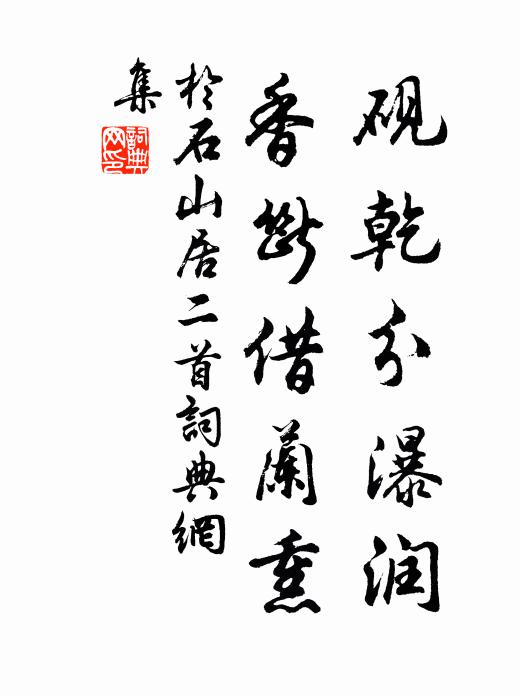 硯乾分瀑润
香斷借蘭熏
於石山居二首詞典網
集
詞典
网印